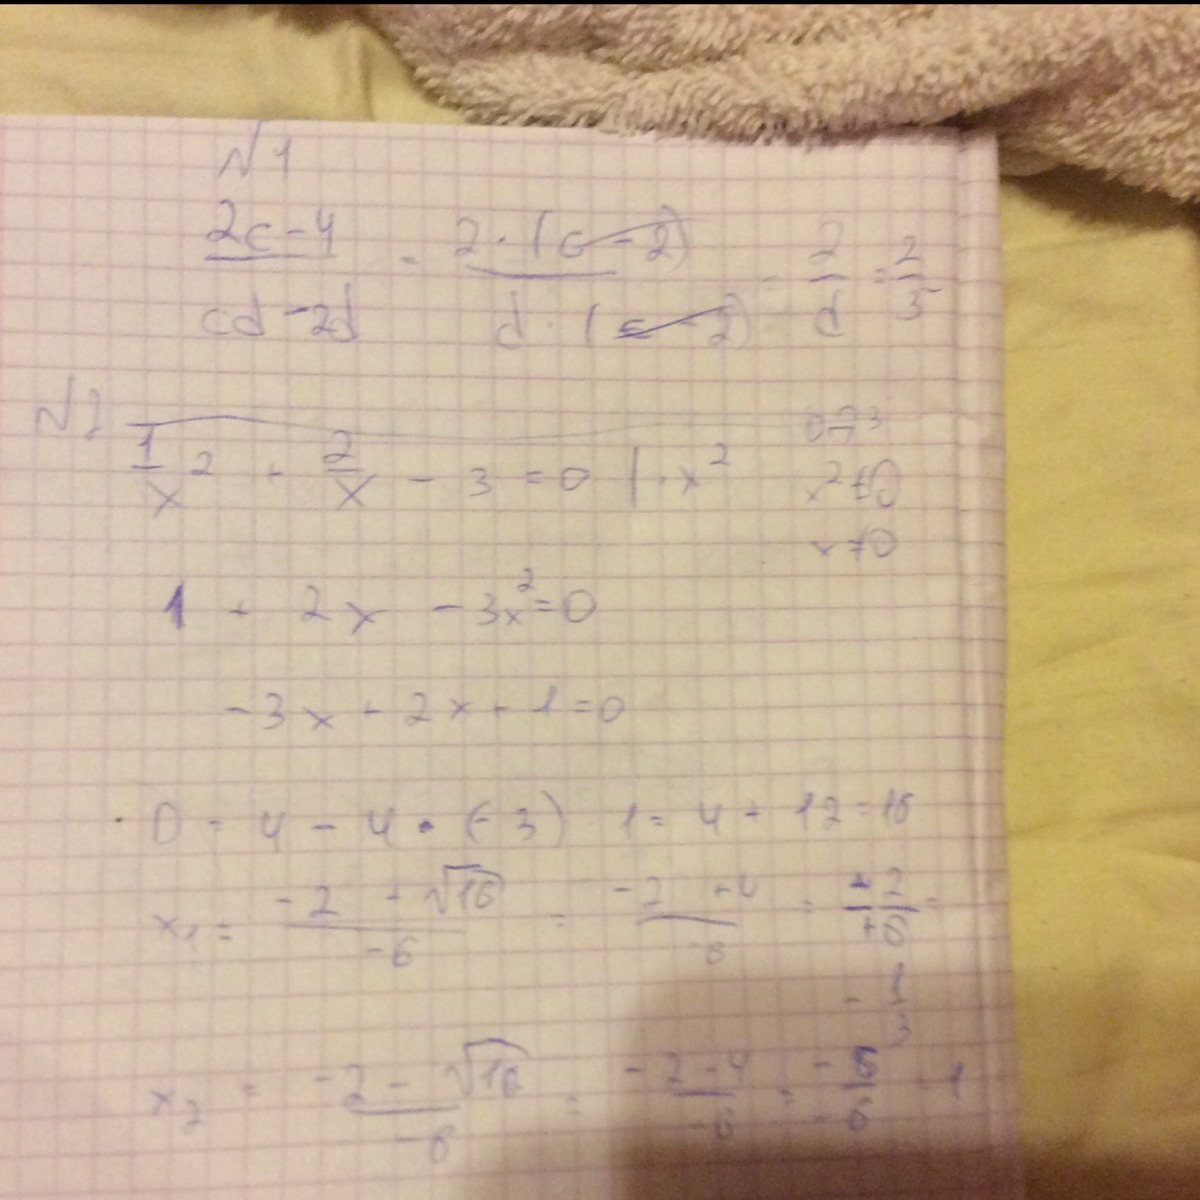 √ 1
2c-4 / cd-2d = 2·(c-2) / d·(c-2) = 2/d = 2/5
√2
1/x² + 2/x - 3 = 0 |·x²
x²≠0
x≠0
1 + 2x - 3x² = 0
-3x + 2x + 1 = 0
D = 4 - 4·(-3) 1 = 4 + 12 = 16
x₁ = -2 + √16 / -6 = -2 + 4 / -6 = -2/+6 =
- 1/3
x₂ = -2 - √16 / -6 = -2-4 / -6 = -6 / -6 1